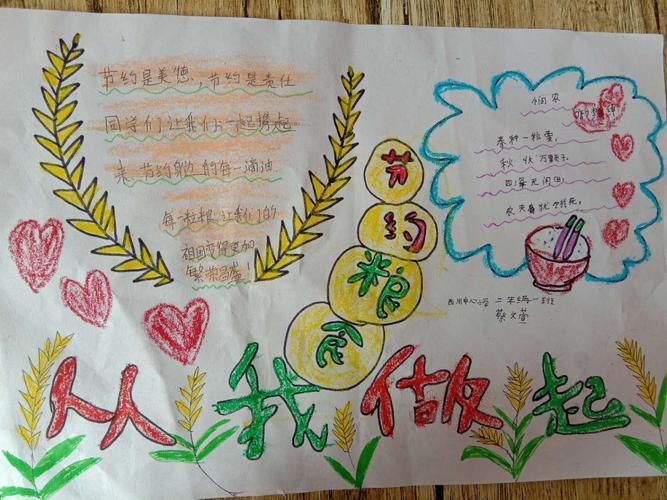 节约是美德,节约是责任
同学们让我们一起
来 节约身边的每一滴油
每一粒粮 让我们的
祖国变得更加
繁荣昌盛!
节约粮食
悯农
春种一粒粟,
秋收万颗子,
四海无闲田,
农夫犹饿死,
中心小学 二年级一班
蔡文萱
从我做起